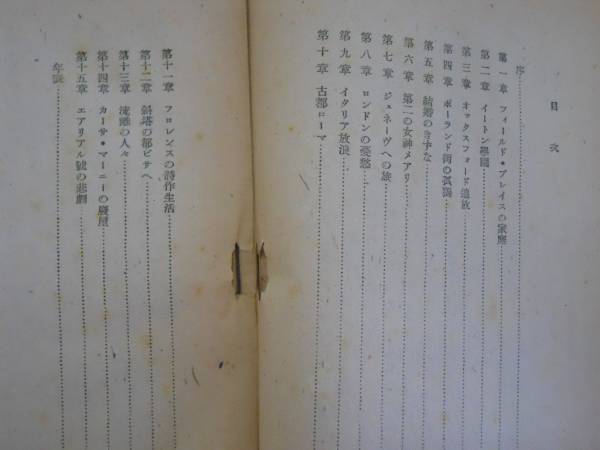 目次
序
第一章 フィールド・プレイスの家庭
第二章 イートン學園
第三章 オックスフォード追放
第四章 ポーランド街の孤獨
第五章 結婚のきずな
第六章 第二の女神メアリ
第七章 ジュネーヴへの旅
第八章 ロンドンの憂愁
第九章 イタリア放浪
第十章 古都ローマ
第十一章 フロレンスの詩作生活
第十二章 斜塔の都ピサへ
第十三章 流離の人々
第十四章 カーサ・マーニーの廢屋
第十五章 エアリアル號の悲劇
年譜